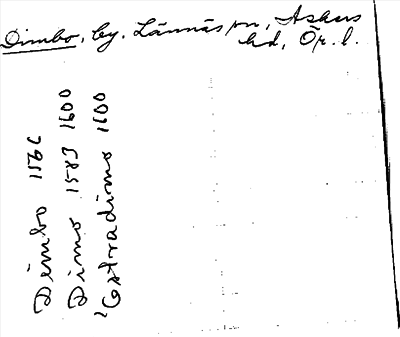 Dimbo, by. Lännäs sn, Askers
hd, Ör. l.
Dimbo 1566
Dimo 1583 1600
Östradimo 1600